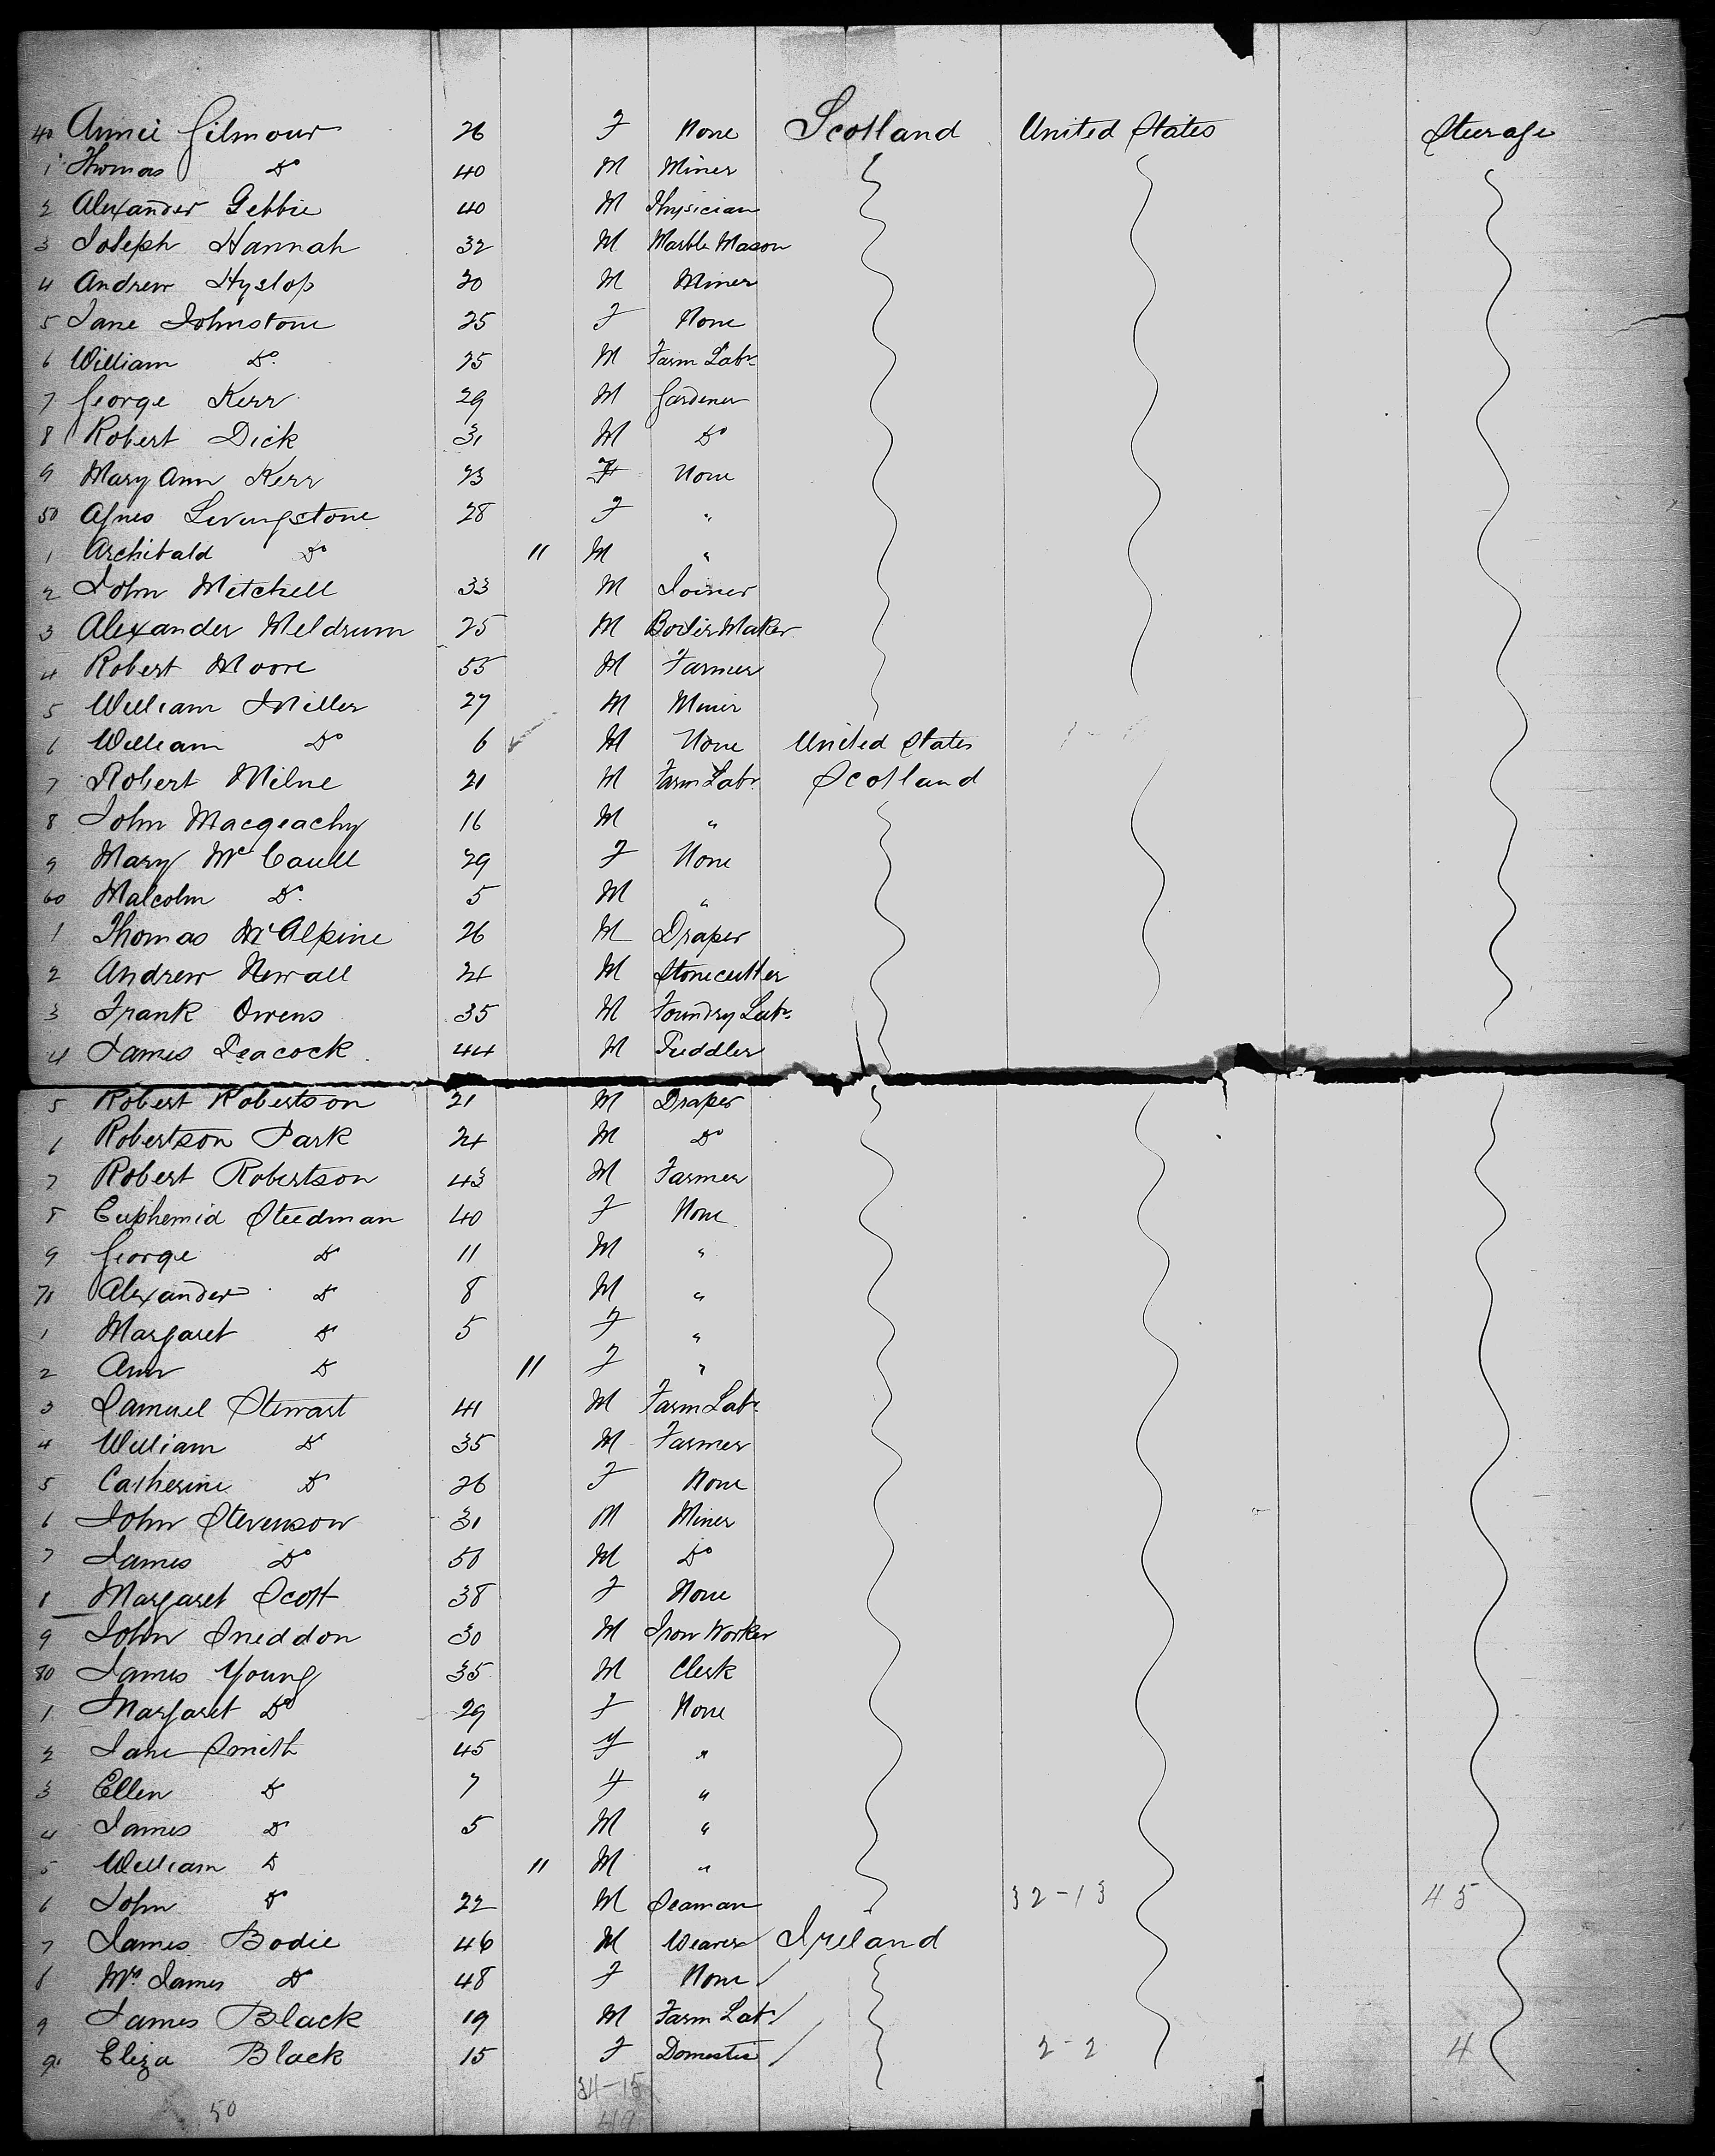 40 Annie Gilmour 26 F None Scotland United States Steerage
1 Thomas Do 40 M Miner
2 Alexander Gebbie 40 M Physician
3 Joseph Hannah 32 M Marble Mason
4 Andrew Hyslop 20 M Miner
5 Jane Johnstone 25 F None
6 William Do. 25 M Farm Labr
7 George Kerr 29 M Gardener
8 Robert Dick 31 M Do
9 Mary Ann Kerr 23 F None
50 Agnes Livingstone 28 F "
1 Archibald Do 11 M "
2 John Mitchell 33 M Joiner
3 Alexander Meldrum 25 M Boiler Maker
4 Robert Moore 55 M Farmer
5 William Miller 27 M Miner
6 William Do 6 M None United States
7 Robert Milne 21 M Farm Labr Scotland
8 John Macgeachy 16 M "
9 Mary McCaull 29 F None
60 Malcolm Do. 5 M "
1 Thomas McAlpine 26 M Draper
2 Andrew Newall 24 M Stonecutter
3 Frank Owens 35 M Foundry Labr
4 James Peacock 44 M Puddler
5 Robert Robertson 21 M Draper
6 Robertson Park 24 M Do
7 Robert Robertson 43 M Farmer
8 Euphemid Steedman 40 F None
9 George Do 11 M "
70 Alexander Do 8 M "
1 Margaret Do 5 F "
2 Ann Do 11 F "
3 Samuel Stewart 41 M Farm Labr
4 William Do 35 M Farmer
5 Catherine Do 26 F None
6 John Stevenson 31 M Miner
7 James Do 50 M Do
8 Margaret Scott 38 F None
9 John Sneddon 30 M Iron Worker
80 James Young 35 M Clerk
1 Margaret Do 29 F None
2 Jane Smith 45 F "
3 Ellen Do 7 F "
4 James Do 5 M "
5 William Do 11 M "
6 John Do 22 M Seaman 32-13 45
7 James Bodie 46 M Weaver Ireland
8 Mrs James Do 48 F None
9 James Black 19 M Farm Labr
90 Eliza Black 15 F Domestic 2-2 4
34-15
50 49